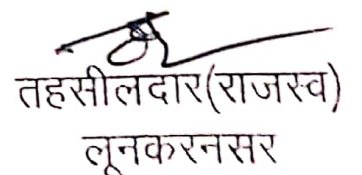 तहसीलदार(राजस्व)
लूनकरनसर